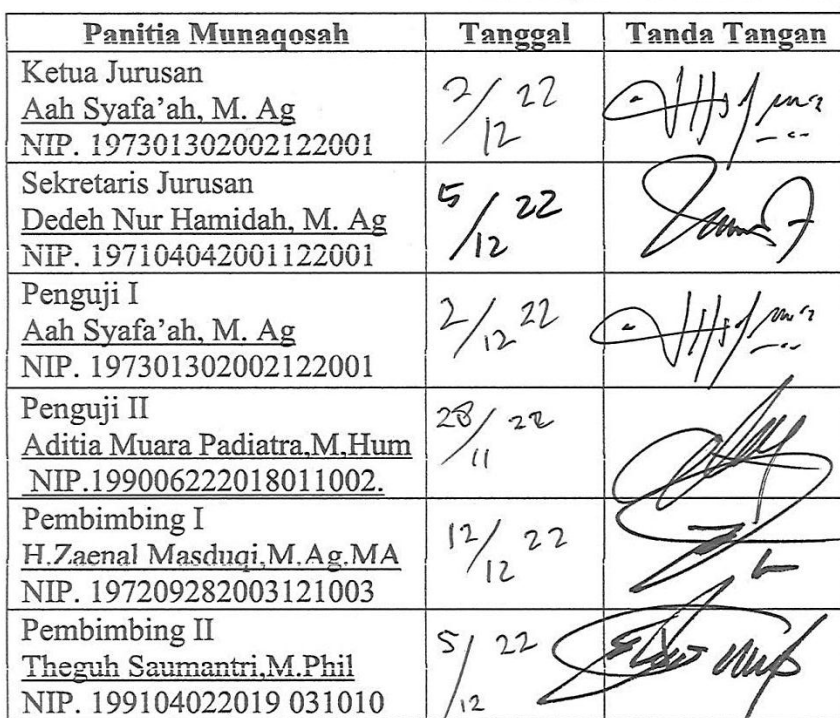 Panitia Munaqosah Tanggal Tanda Tangan
Ketua Jurusan
Aah Syafa'ah, M. Ag
NIP. 197301302002122001
2/12 22
Sekretaris Jurusan
Dedeh Nur Hamidah, M. Ag
NIP. 197104042001122001
5/12 22
Penguji I
Aah Syafa'ah, M. Ag
NIP. 197301302002122001
2/12 22
Penguji II
Aditia Muara Padiatra,M,Hum
NIP.199006222018011002.
28/11 22
Pembimbing I
H.Zaenal Masduqi,M.Ag.MA
NIP. 197209282003121003
12/12 22
Pembimbing II
Theguh Saumantri,M.Phil
NIP. 199104022019 031010
5/12 22